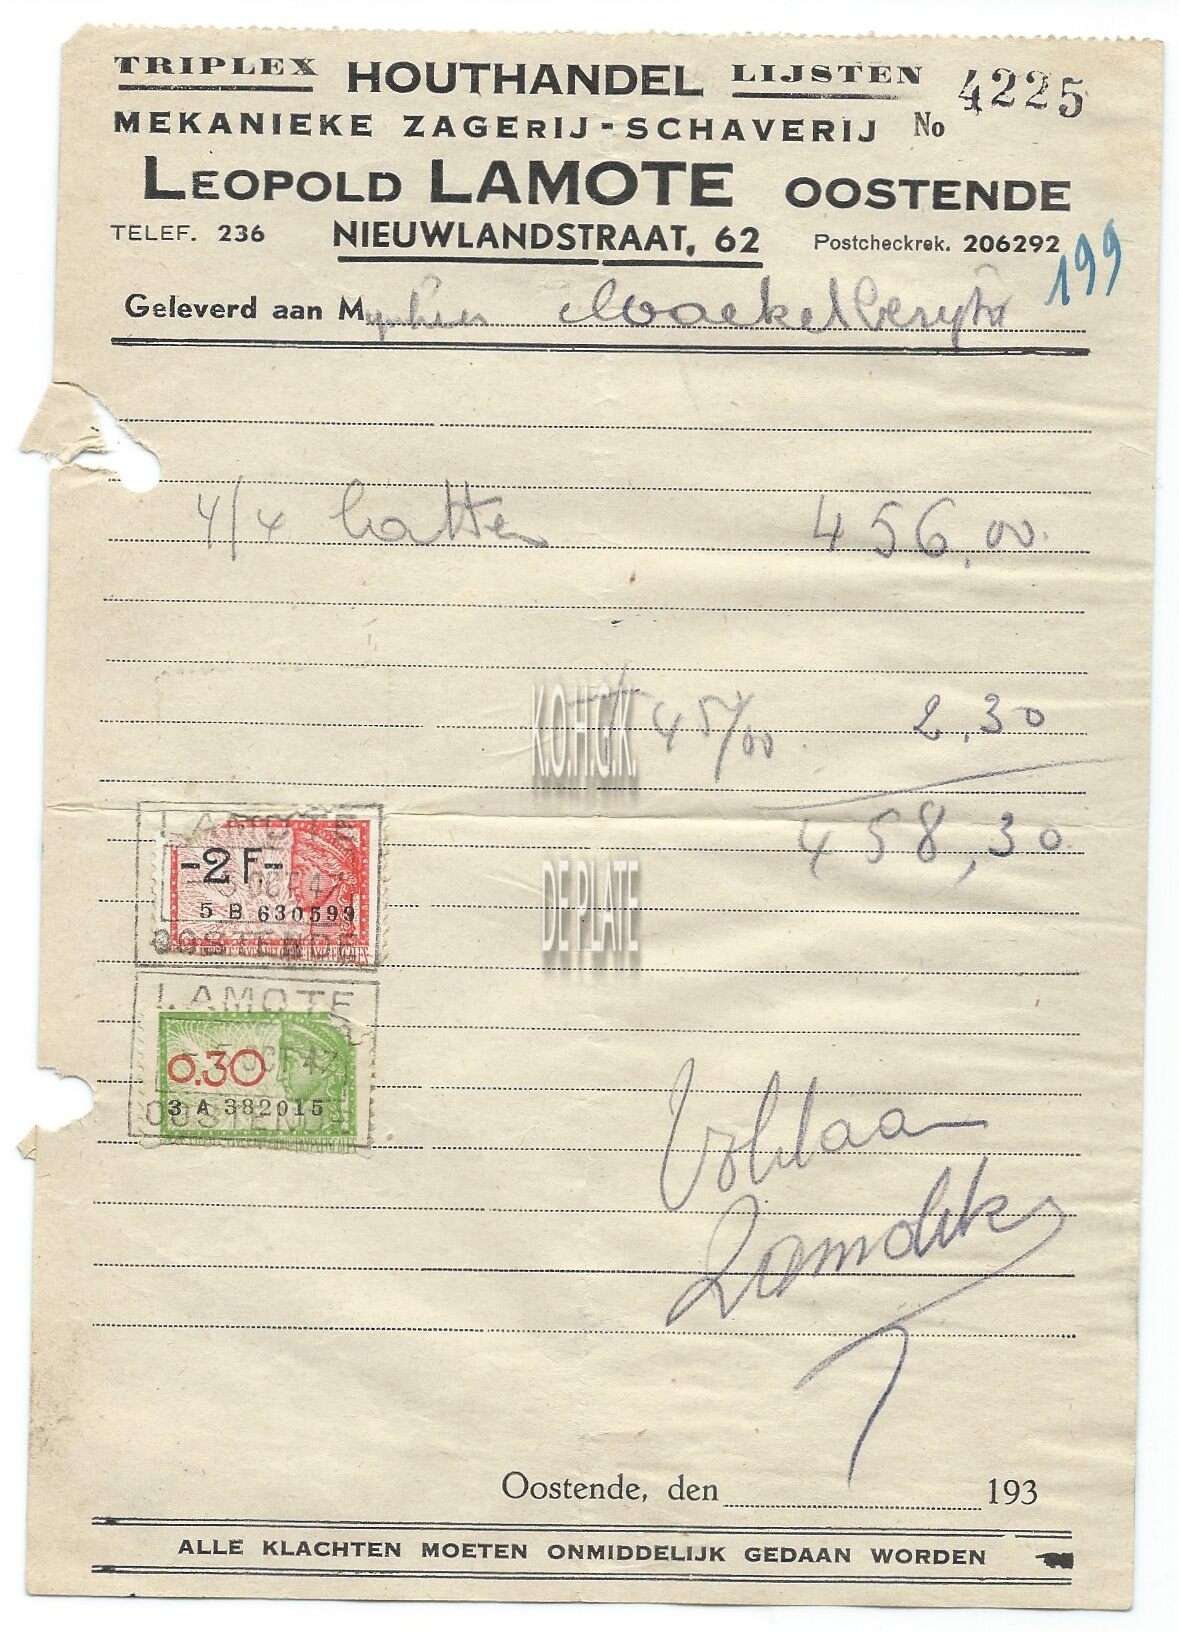 TRIPLEX HOUTHANDEL LIJSTEN 4225
MEKANIEKE ZAGERIJ - SCHAVERIJ No
LEOPOLD LAMOTE OOSTENDE
TELEF. 236 NIEUWLANDSTRAAT, 62 Postcheckrek. 206292
199
Geleverd aan Mynheer
4/4 latten 456,00
K.O.H.G.K. 2,30
458,30
DE PLATE
LAMOTE
-2 F.-
OCT 47
5 B 630599
OOSTENDE
LAMOTE
0.30
-5 OCT 47
3 A 382015
OOSTENDE
Voldaan
Oostende, den 193
ALLE KLACHTEN MOETEN ONMIDDELIJK GEDAAN WORDEN